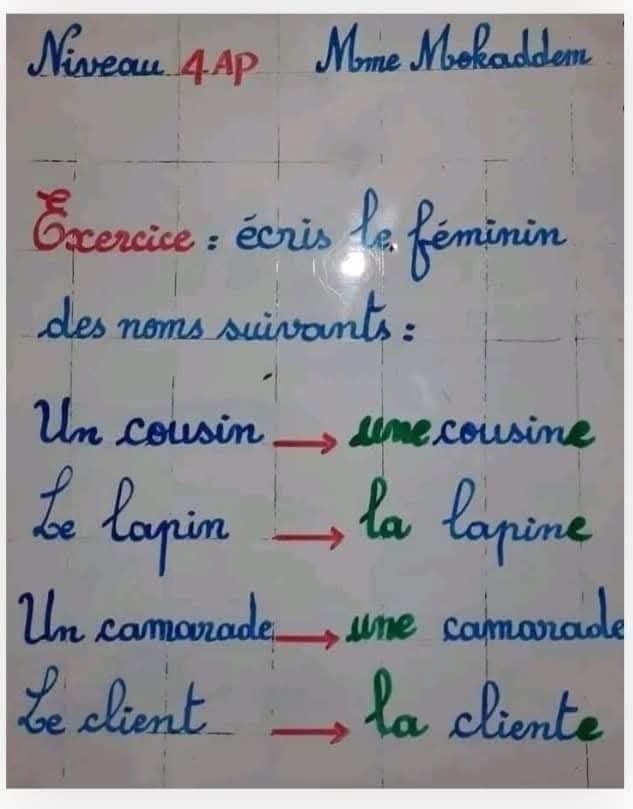 Niveau 4 AP Mme Mokaddem
Exercice : écris le féminin
des noms suivants :
Un cousin → une cousine
Le lapin → la lapine
Un camarade → une camarade
Le client → la cliente